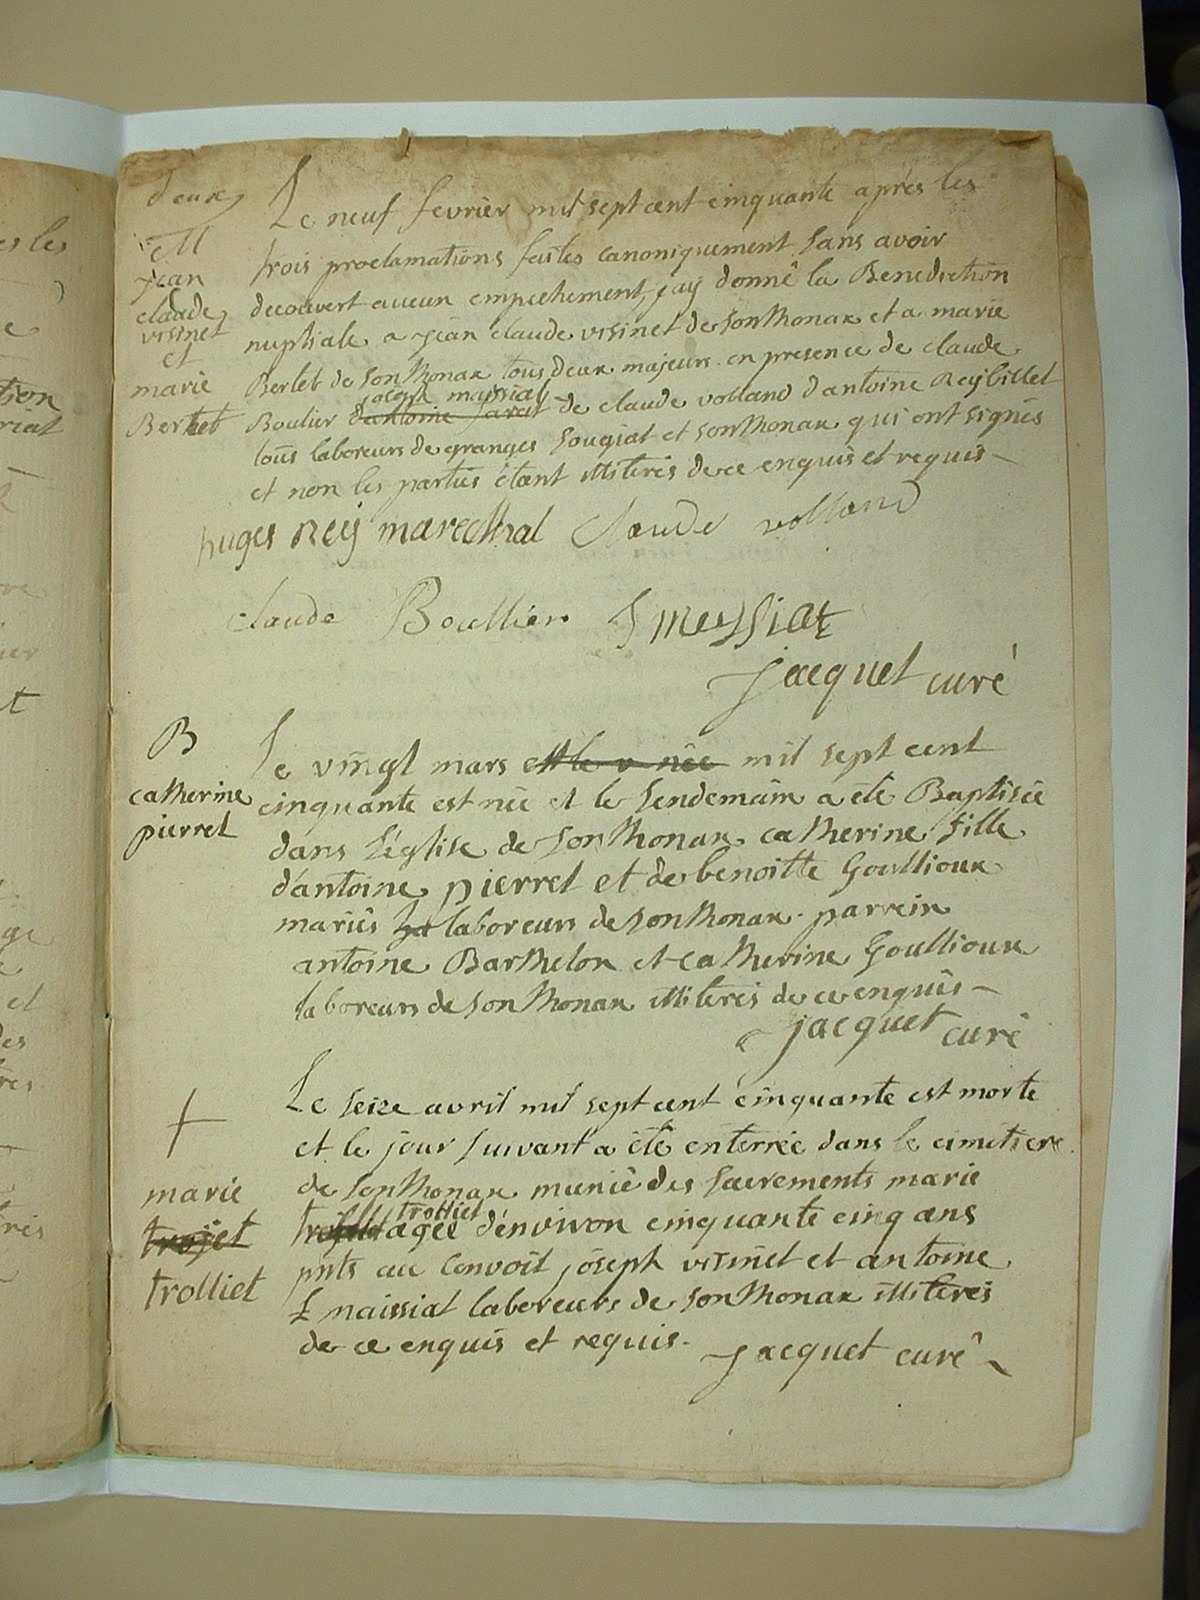 deux
Le neuf fevrier mil sept cent cinquante après les
M
jean
claude
visinet
et
marie
Bertet
trois proclamations faites canoniquement sans avoir
decouvert aucun empechement, jay donnê la Benediction
nuptiale a jean claude visinet de sonthonax et a marie
Bertet de sonthonax tous deux majeurs en presence de claude
joseph
Boulier de claude volland d'antoine Reybillet
tous laboreurs de granges Sougiat et sonthonax qui ont signés
et non les parties étant illiterés de ce enquis et requis
huges Rey marecthal claude volland
claude Boullier J messiat
jacquet curé
B
catherine
pierrel
Le vingt mars mil sept cent
cinquante est née et le lendemain a été Baptisée
dans l'église de sonthonax catherine fille
d'antoine pierrel et de benoitte Goullioux
mariés laboreurs de sonthonax parrein
antoine Barthelon et catherine Goullioux
laboreurs de sonthonax illiterés de ce enquis
jacquet curé
Le seize avril mil sept cent cinquante est morte
et le jour suivant a été enterrée dans le cimetiere
de sonthonax munie des sacrements marie
marie
trojet
trolliet
trolliet
agée d'environ cinquante cinq ans
pnts au convoit joseph visinet et antoine
naissiat laboreurs de sonthonax illiterés
de ce enquis et requis.
jacquet curê